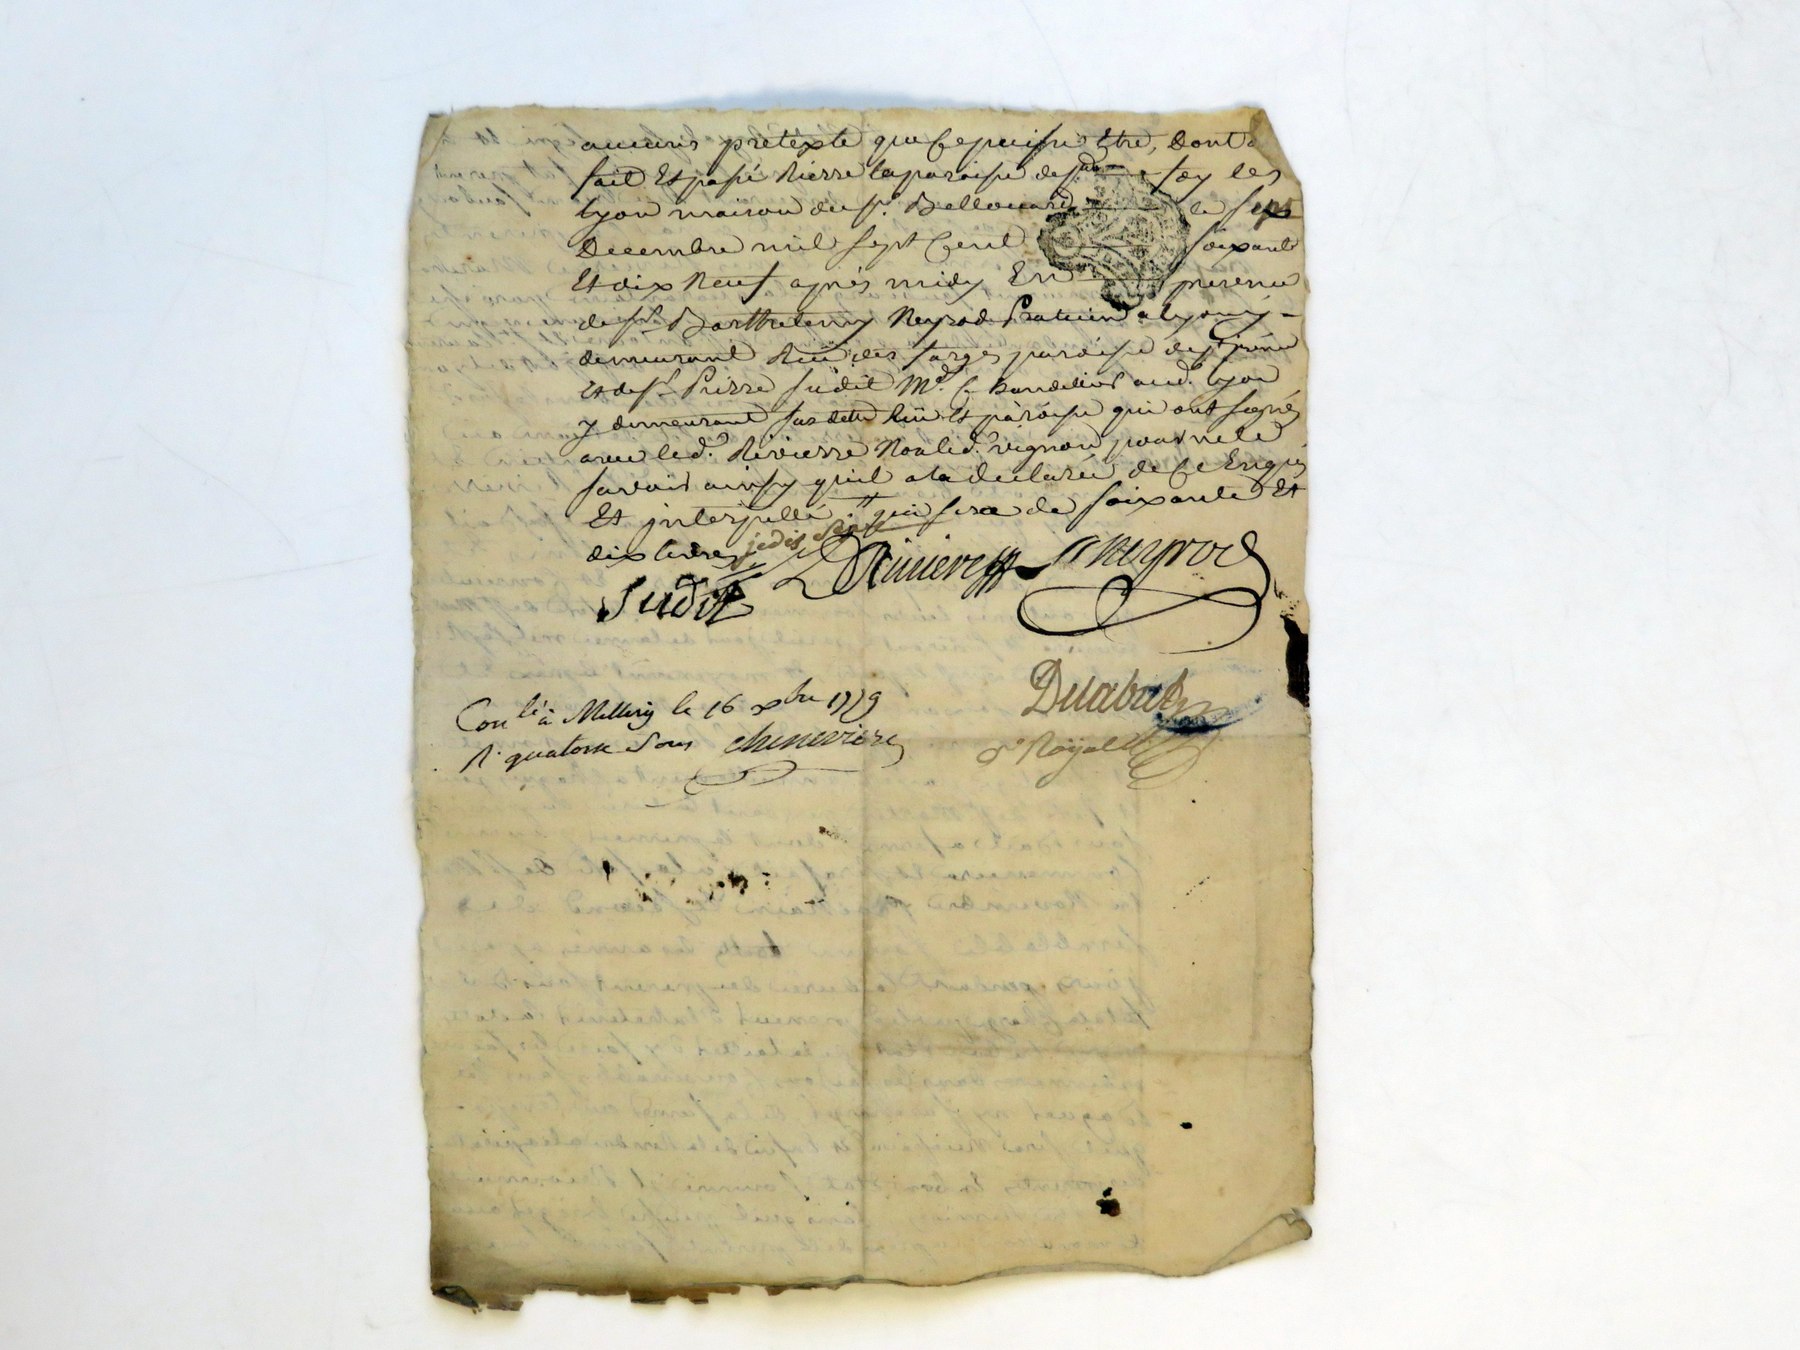 aucuns pretexte que ce puisse Etre, Dont
fait Et passé Rierre la paroisse de foy les
lyon maison du sr. Bellouard le sept
Decembre mil sept Cent soixante
Et dix Neuf après midy En presence
de sr. Barthelemy Neyrod Praticien a lyon y
demeurant Rue des farges paroisse de st. jrénée
Et de sr. Pierre sudit Md. aud. lyon
y demeurant susditte Rüe Et paroisse qui ont signés
avec led. Rivierre Non led. vignon pour ne le
savoir ainsy quil a la declaré de ce Enquis
Et jnterpellé. qui sera de soixante Et
dix livres je dis
Sudit Riviere Neyrod
Delabat
Conlé à Millery le 16 xbre 1779
R. quatorze sous chenevier
Nre Royal